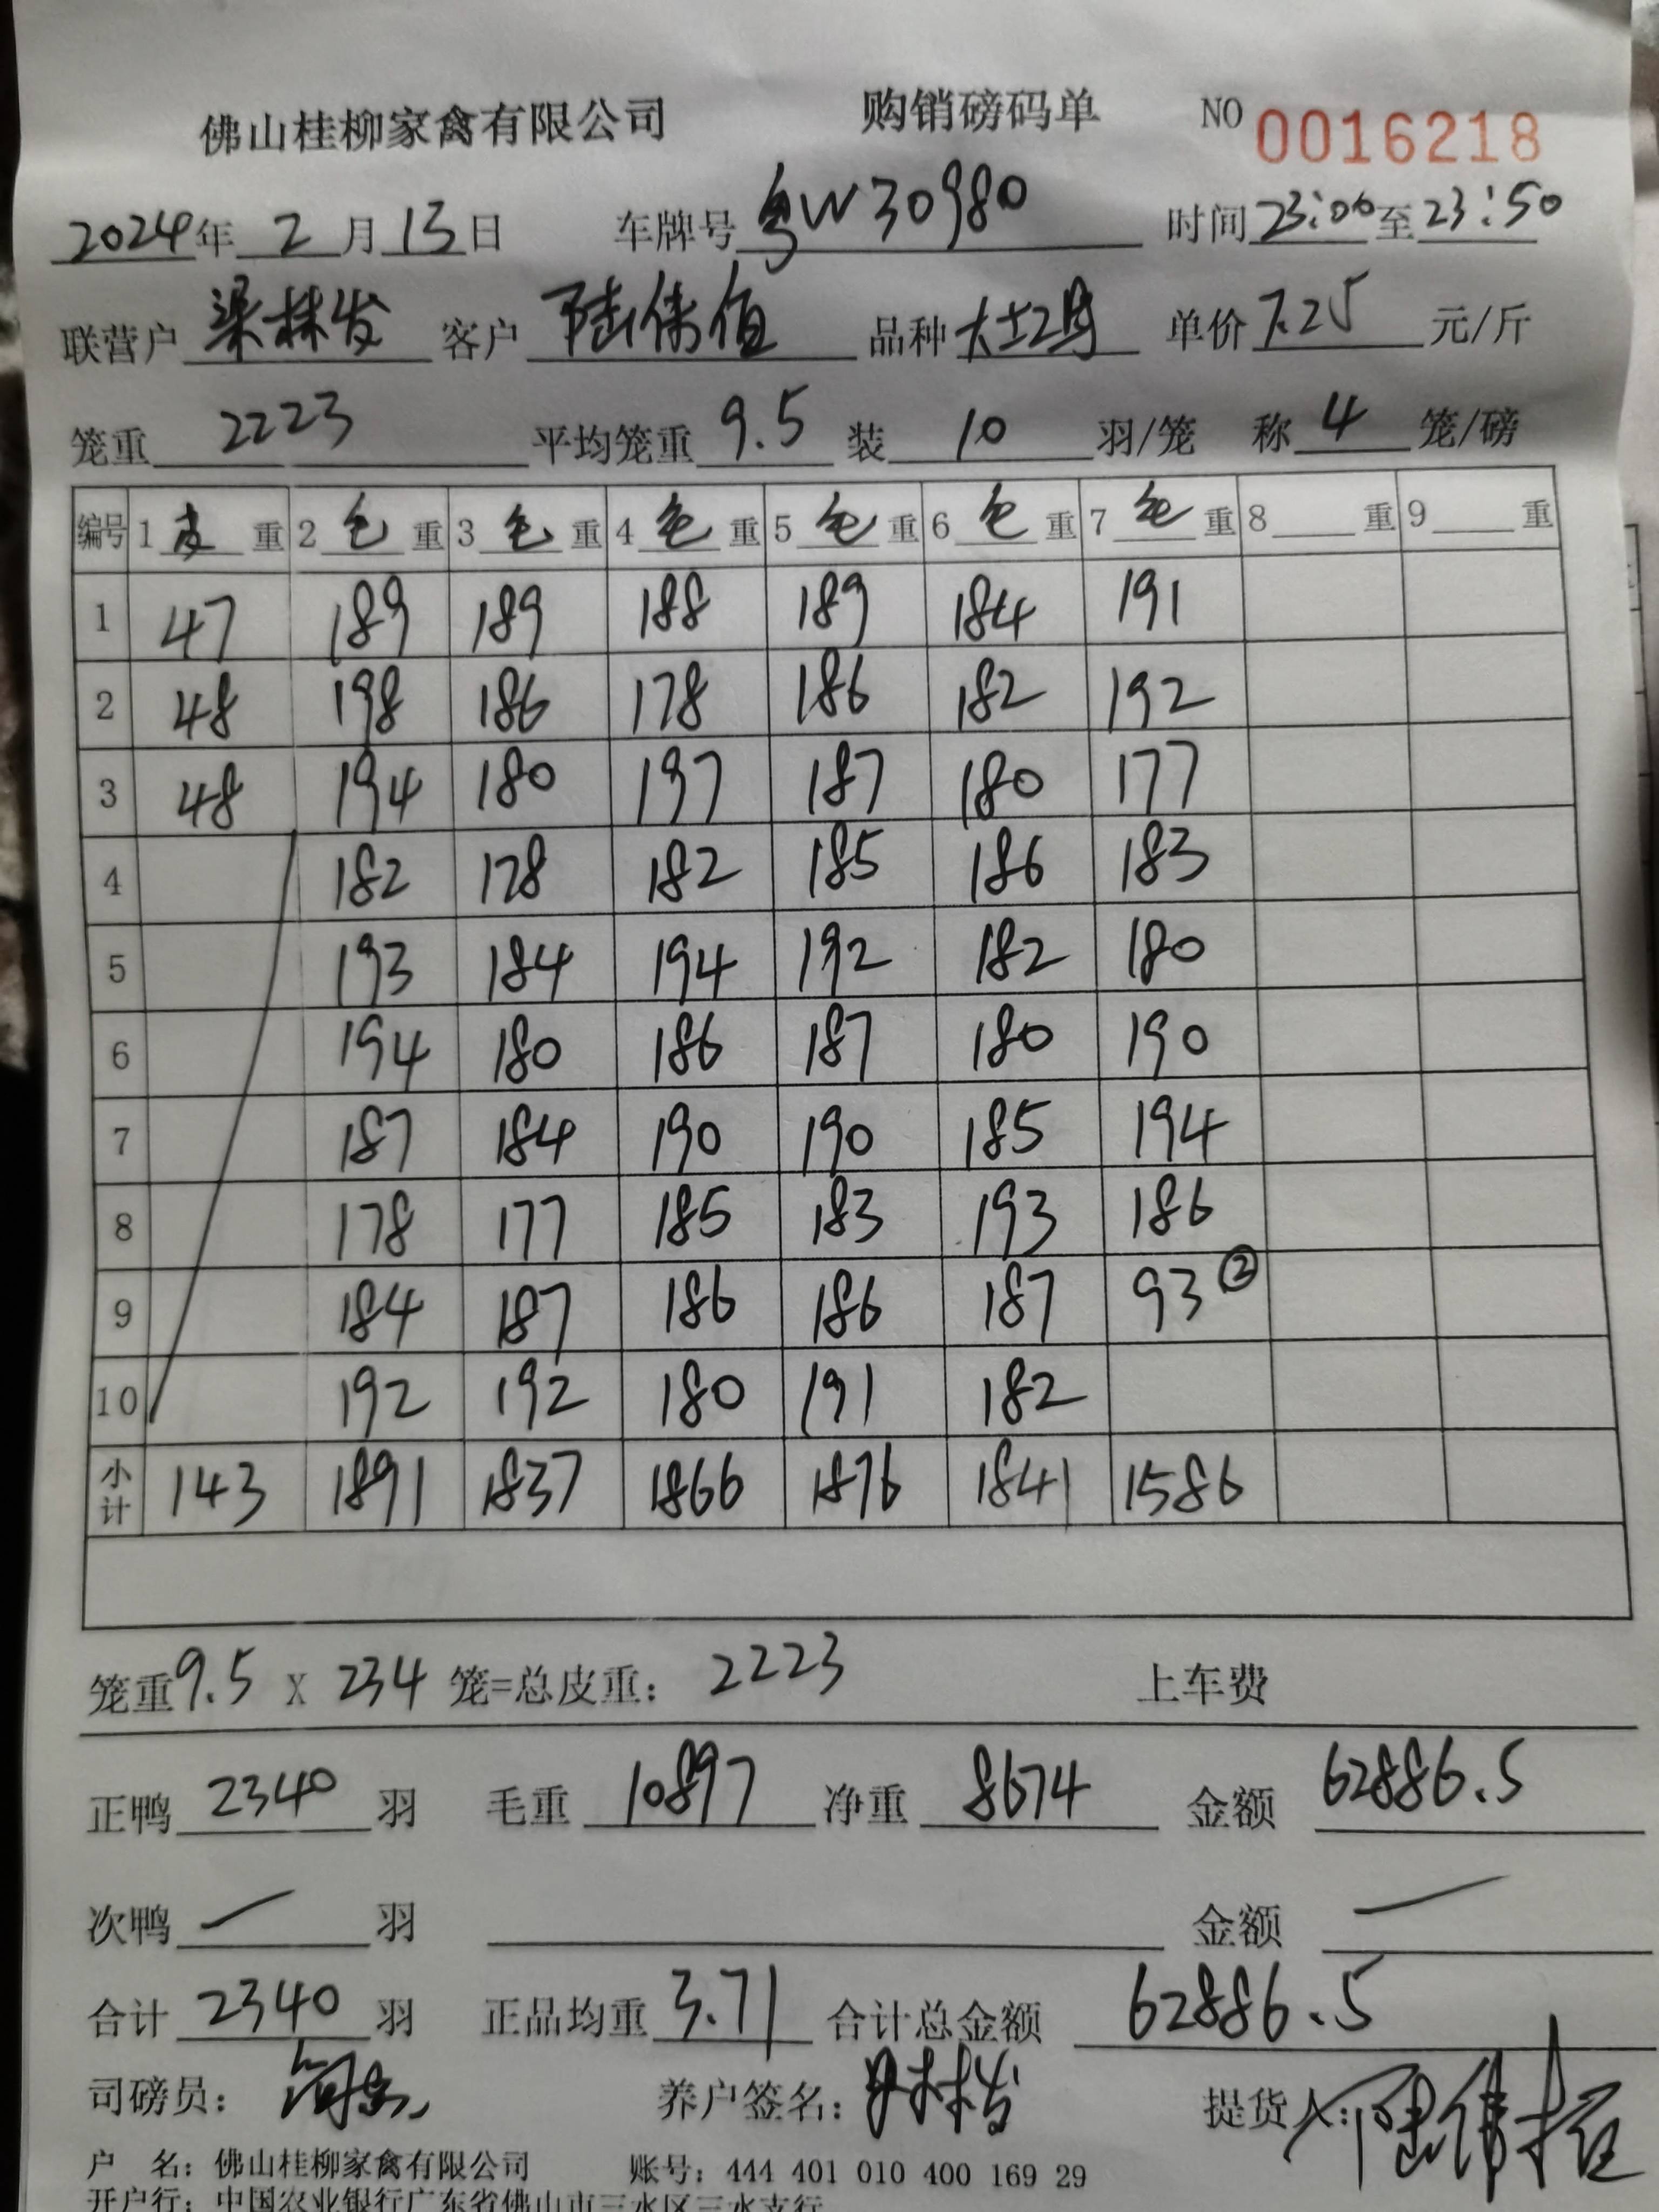 佛山桂柳家禽有限公司 购销磅码单 NO 0016218
2024年 2 月 13 日 车牌号 粤W30980 时间 23:00 至 23:50
联营户 梁林发 客户 陆伟 品种 单价 7.25 元/斤
笼重 2223 平均笼重 9.5 装 10 羽/笼 称 4 笼/磅
编号 1 皮 重 2 毛 重 3 毛 重 4 毛 重 5 毛 重 6 毛 重 7 毛 重 8 重 9 重
1 47 189 189 188 189 184 191
2 48 198 186 178 186 182 192
3 48 194 180 197 187 180 177
4 182 178 182 185 186 183
5 193 184 194 192 182 180
6 194 180 186 187 180 190
7 187 184 190 190 185 194
8 178 177 185 183 193 186
9 184 187 186 186 187 93 ②
10 192 192 180 191 182
小计 143 1891 1837 1866 1876 1841 1586
笼重 9.5 X 234 笼=总皮重: 2223 上车费
正鸭 2340 羽 毛重 10897 净重 8674 金额 62886.5
次鸭 — 羽 金额 —
合计 2340 羽 正品均重 3.71 合计总金额 62886.5
司磅员: 养户签名: 提货人:
户 名: 佛山桂柳家禽有限公司 账号: 444 401 010 400 169 29
开户行: 中国农业银行广东省佛山市三水区三水支行